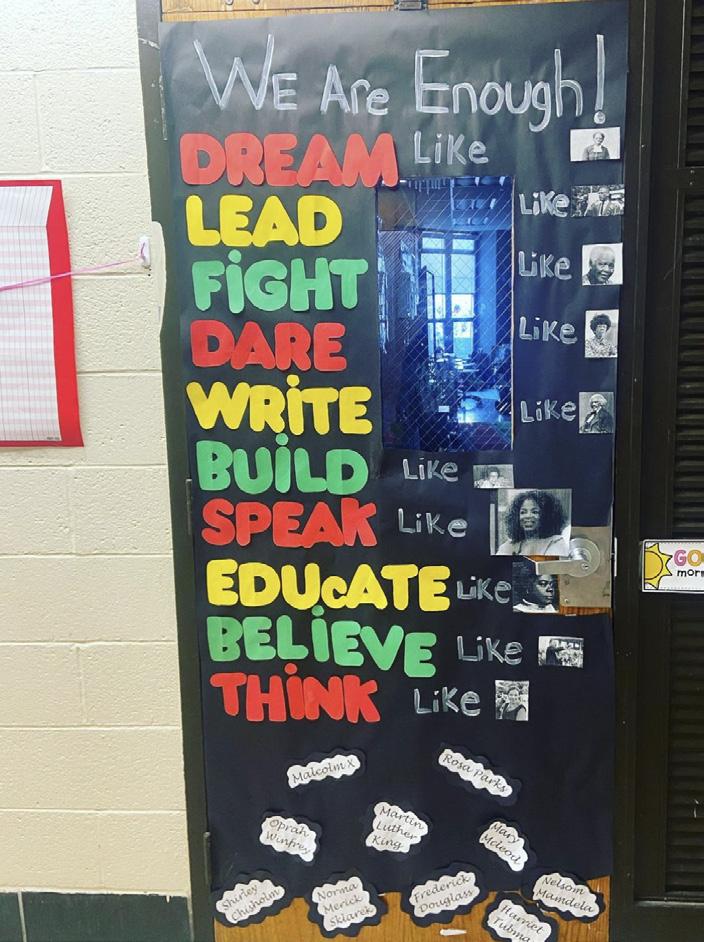 WE Are Enough!
DREAM Like
LEAD Like
FiGHT Like
DARE Like
WRiTE Like
BUiLD Like
SPEAK Like
EDUcATE Like
BELiEVE Like
THiNK Like
Malcolm X
Rosa Parks
Oprah
Winfrey
Martin
Luther
King
Mary
Mcleod
Shirley
Chisholm
Norma
Merick
Sklarek
Frederick
Douglass
Harriet
Tubma
Nelsom
Mamdela
GO
morn